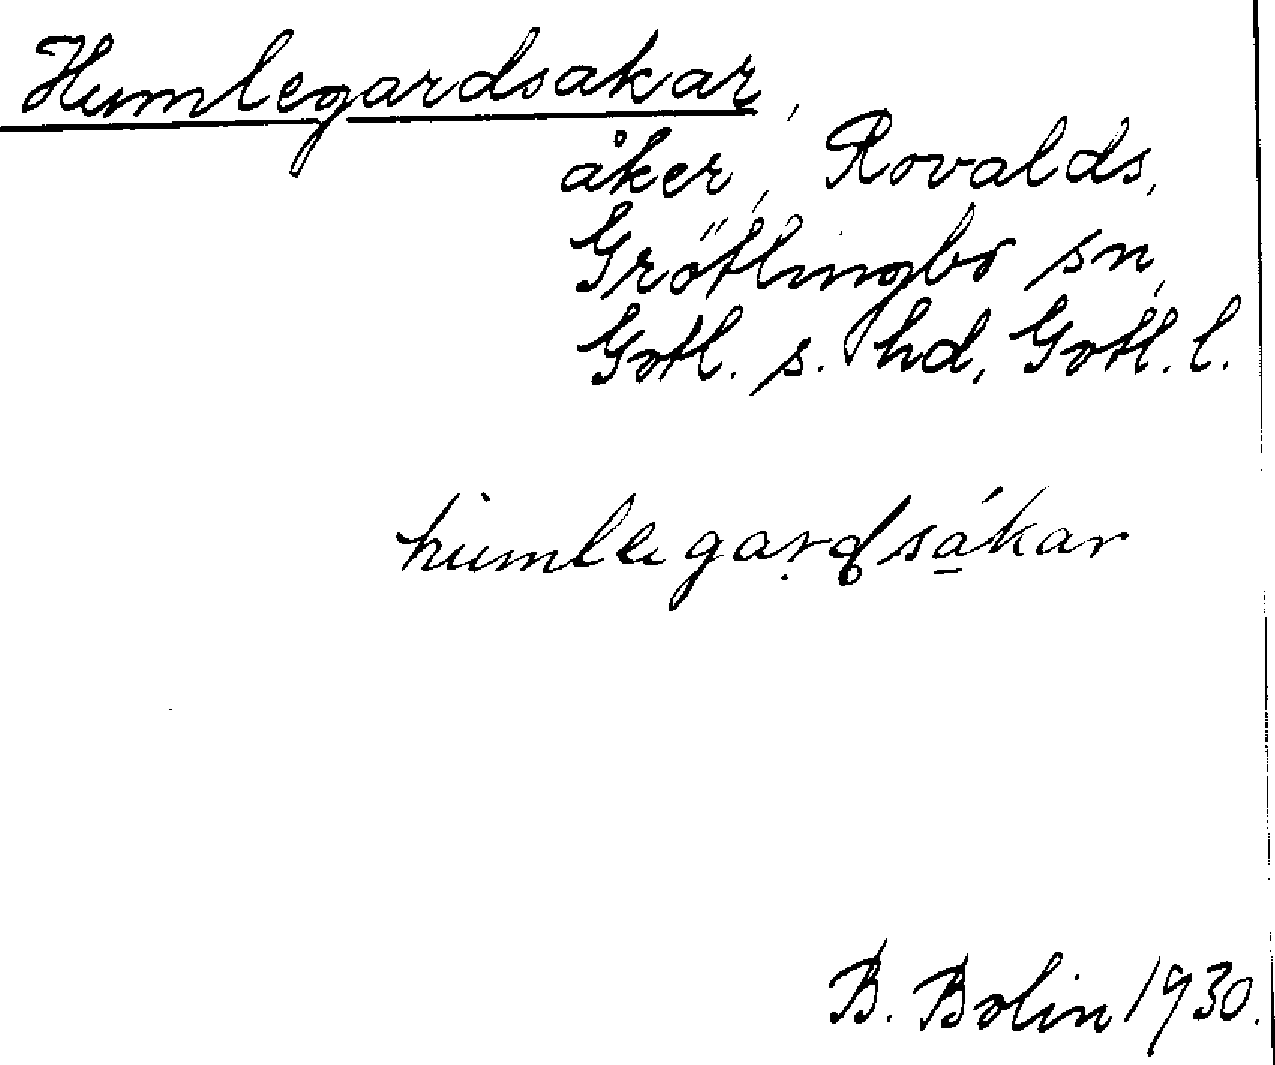 Humlegardsakar,
åker, Rovalds,
Grötlingbo sn,
Gotl. s. hd, Gotl. l.
hùmlegardsákar
B. Bolin 1930.